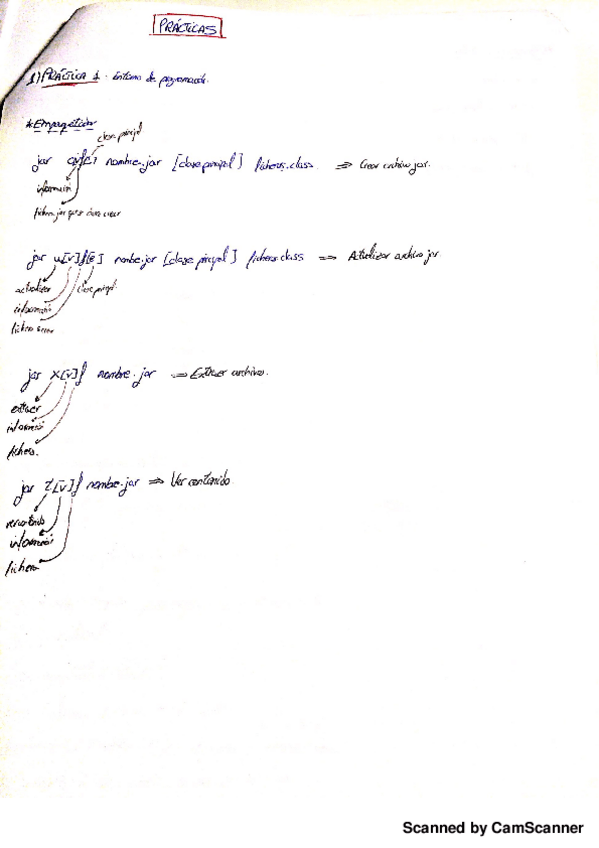 PRÁCTICAS
1) PRÁCTICA 1. entorno de programación.
* Empaquetador
clase principal
jar cvf[e] nombre.jar [clase principal] ficheros.class. => Crear archivo jar.
información
fichero jar que se desea crear
jar u[v]f[e] nombre.jar [clase principal] ficheros.class => Actualizar archivo jar.
actualizar
clase principal
información
fichero
jar x[v]f nombre.jar => Extraer archivo.
extraer
información
fichero.
jar t[v]f nombre.jar => Ver contenido.
ver contenido
información
fichero
Scanned by CamScanner